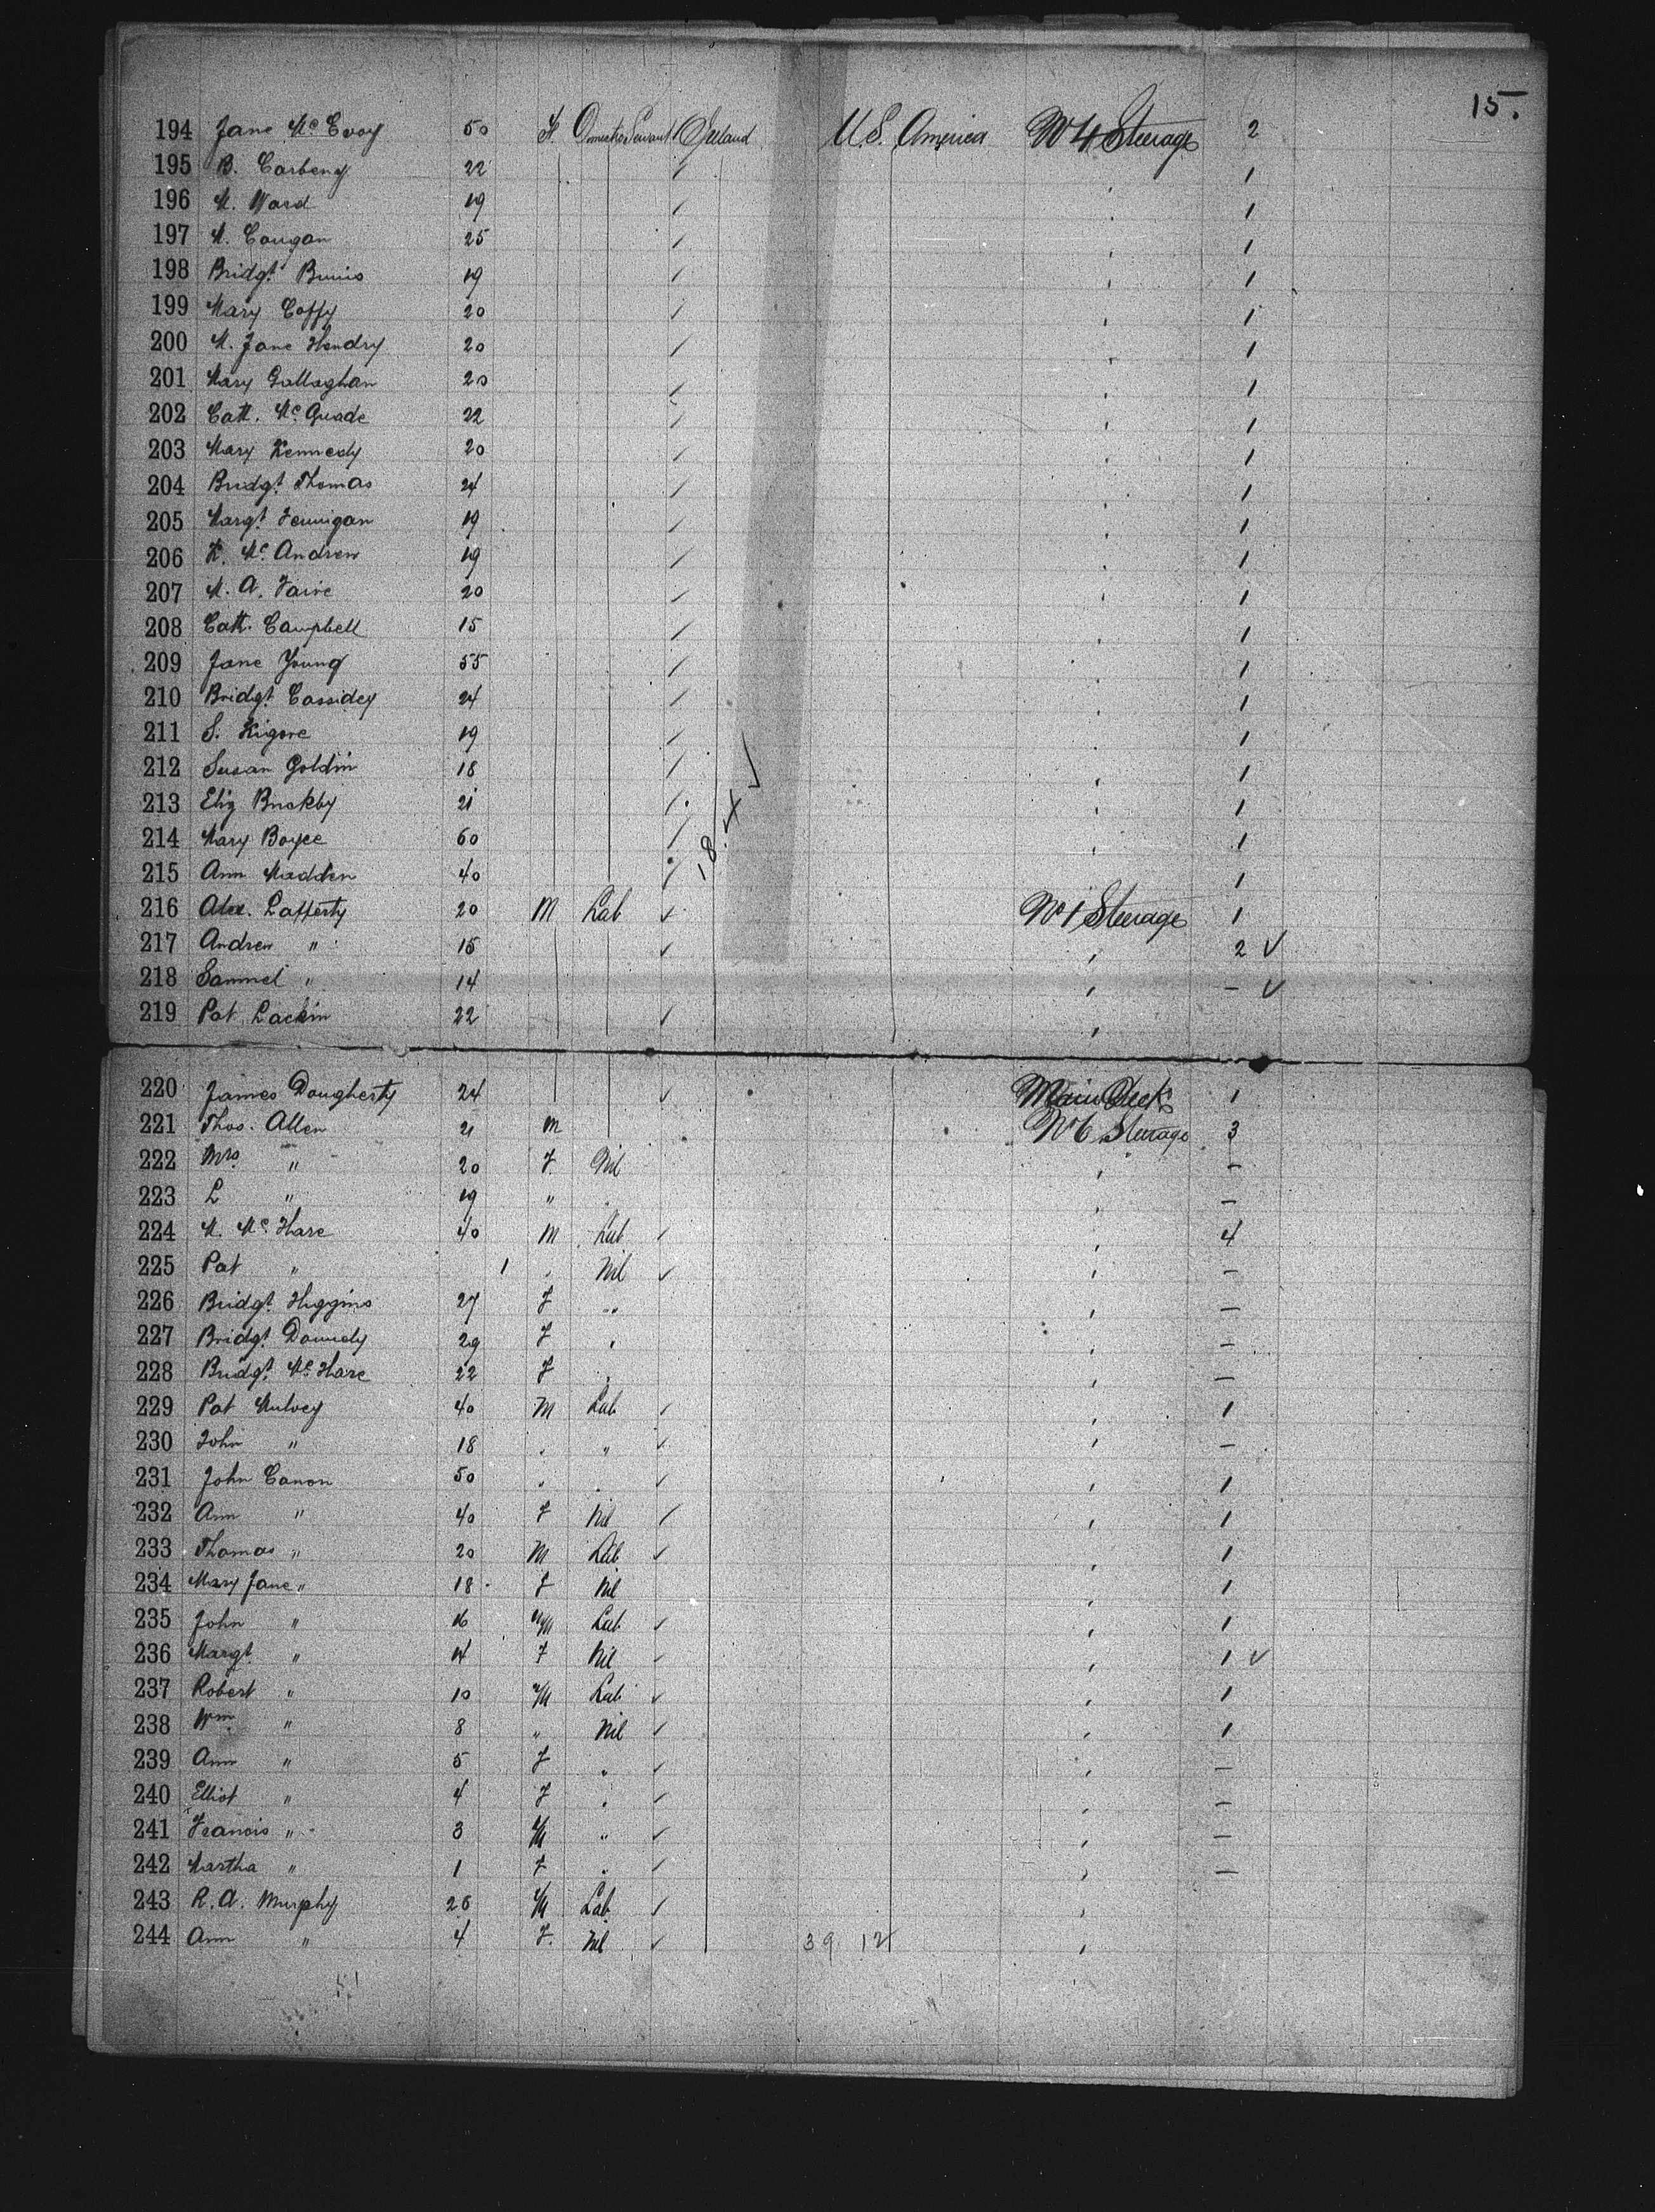 15.
194 Jane McEvoy 50 F. Domestic Servant Ireland U.S. America No 4 Steerage 2
195 B. Carbeny 22 1
196 M. Ward 19 1
197 M. Cougan 25 1
198 Bridgt. 19 1
199 Mary Coffy 20 1
200 M. Jane Hendry 20 1
201 Mary Gallaghan 20 1
202 Cath. McQuade 22 1
203 Mary Kennedy 20 1
204 Bridgt. Thomas 24 1
205 Margt. Fernigan 19 1
206 K. McAndrew 19 1
207 M. A. 20 1
208 Cath. Campbell 15 1
209 Jane Young 55 1
210 Bridgt. Cassidey 24 1
211 S. Kigore 19 1
212 Susan Goldin 18 1
213 Eliz 21 1
214 Mary Boyce 60 1
215 Ann Madden 40 1
216 Alex. Lafferty 20 M Lab ✓ No 1 Steerage 1
217 Andrew " 15 ✓ 2 ✓
218 Samuel " 14 – ✓
219 Pat Lackin 22 ✓
220 James Dougherty 24 ✓ Main Deck 1
221 Thos. Allen 21 M No 6 Steerage 3
222 Mrs. " 20 F. Nil –
223 L " 19 " –
224 M. McHare 40 M Lab 4
225 Pat " 1 Nil ✓ –
226 Bridgt. Higgins 27 F " –
227 Bridgt. 29 F –
228 Bridgt. McHare 22 F –
229 Pat Mulvey 40 M Lab 1
230 John " 18 " ✓ –
231 John Canon 50 " ✓ 1
232 Ann " 40 F Nil 1
233 Thomas " 20 M Lab ✓ 1
234 Mary Jane " 18 F Nil 1
235 John " 16 M Lab ✓ 1
236 Margt. " 14 F Nil ✓ 1 ✓
237 Robert " 10 M Lab ✓ 1
238 Wm. " 8 " Nil ✓ 1
239 Ann " 5 F " ✓ –
240 Elliot " 4 F ✓ –
241 Francis " 3 M " ✓ –
242 Martha " 1 F ✓ –
243 R. A. Murphy 26 M Lab ✓
244 Ann " 4 F. Nil ✓ 39 12